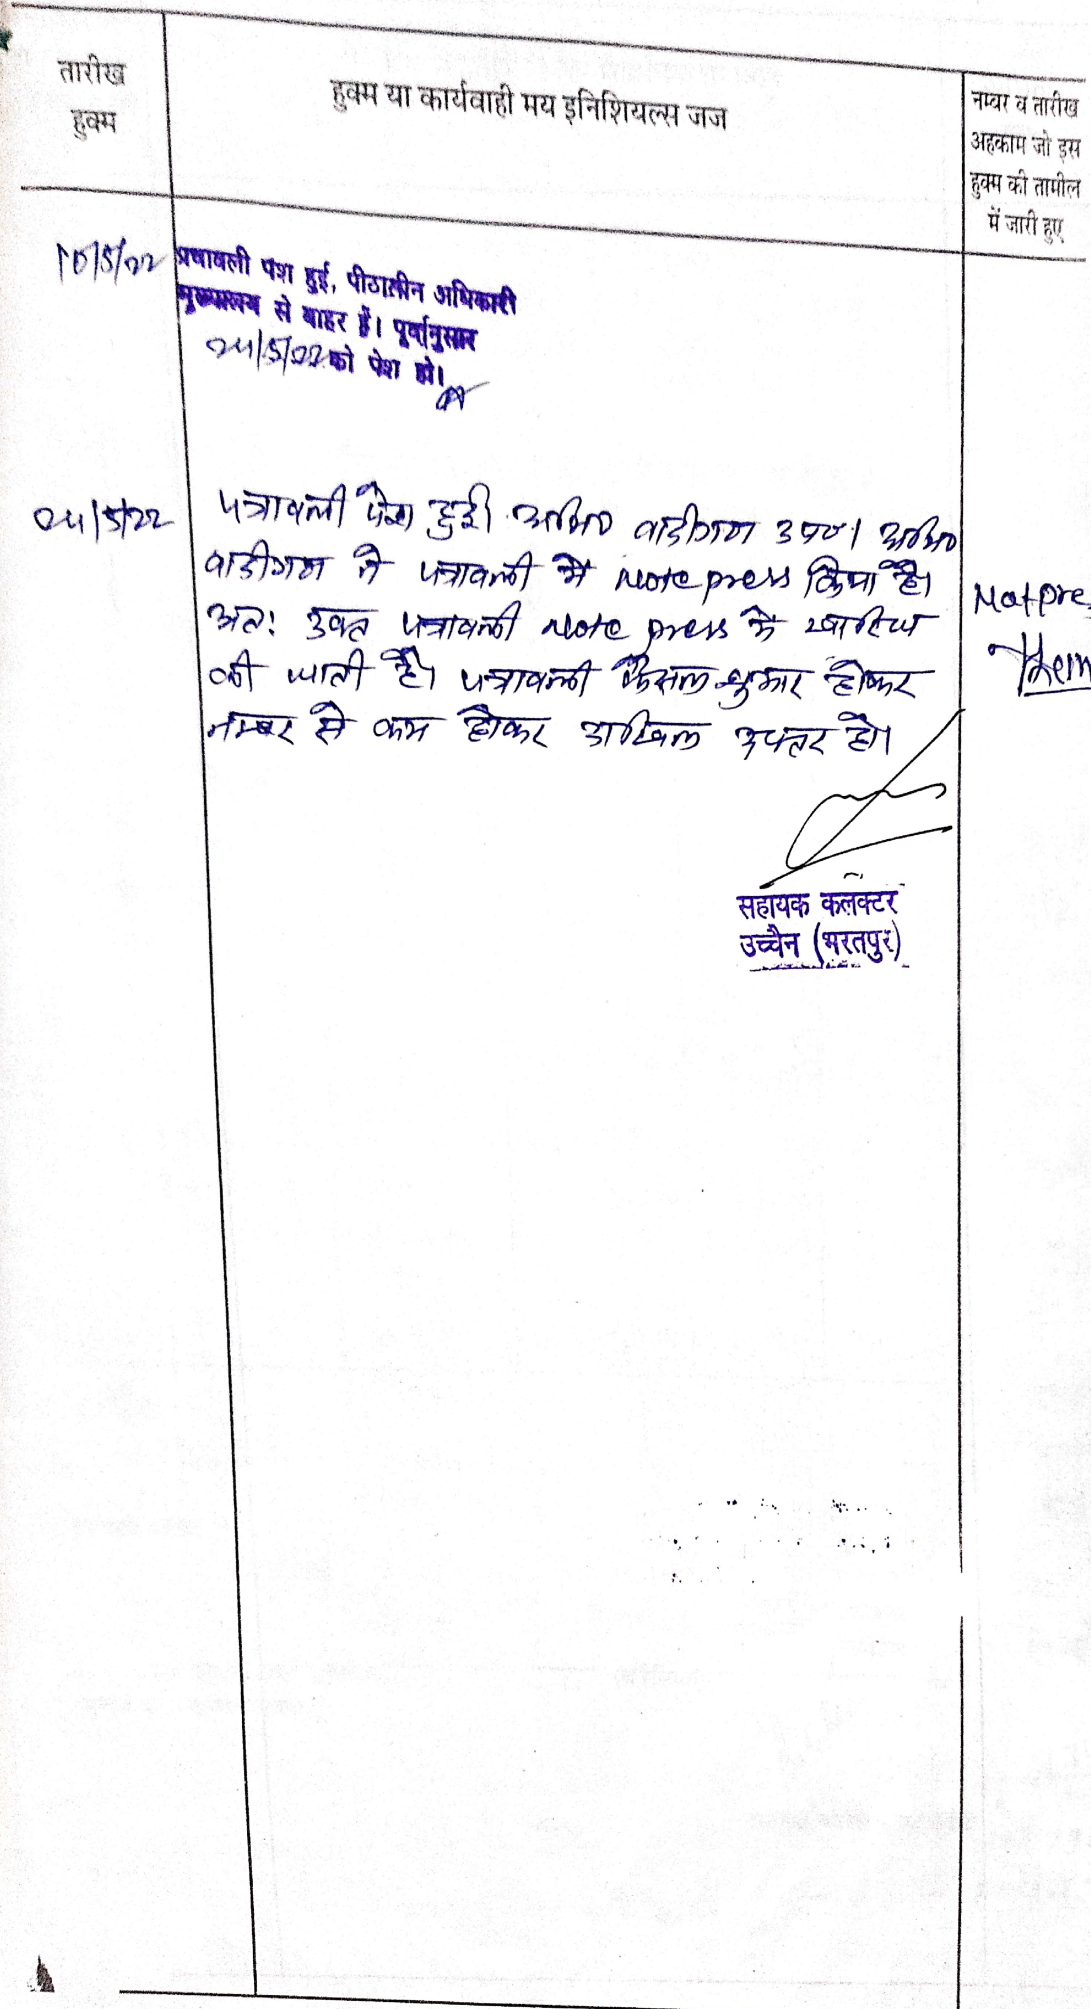 तारीख
हुक्म
हुक्म या कार्यवाही मय इनिशियल्स जज
नम्बर व तारीख
अहकाम जो इस
हुक्म की तामील
में जारी हुए
10/5/22
पत्रावली पेश हुई, पीठासीन अधिकारी
मुख्यालय से बाहर हैं। पूर्वानुसार
24/5/22 को पेश हो।
24/5/22
पत्रावली पेश हुई। अभि० वादीगण उप०। अभि०
वादीगण ने पत्रावली में Note press किया है।
अतः उक्त पत्रावली Note press में खारिज
की जाती है। पत्रावली फैसल शुमार होकर
नम्बर से कम होकर दाखिल दफ्तर हो।
Not pre
सहायक कलेक्टर
उच्चैन (भरतपुर)